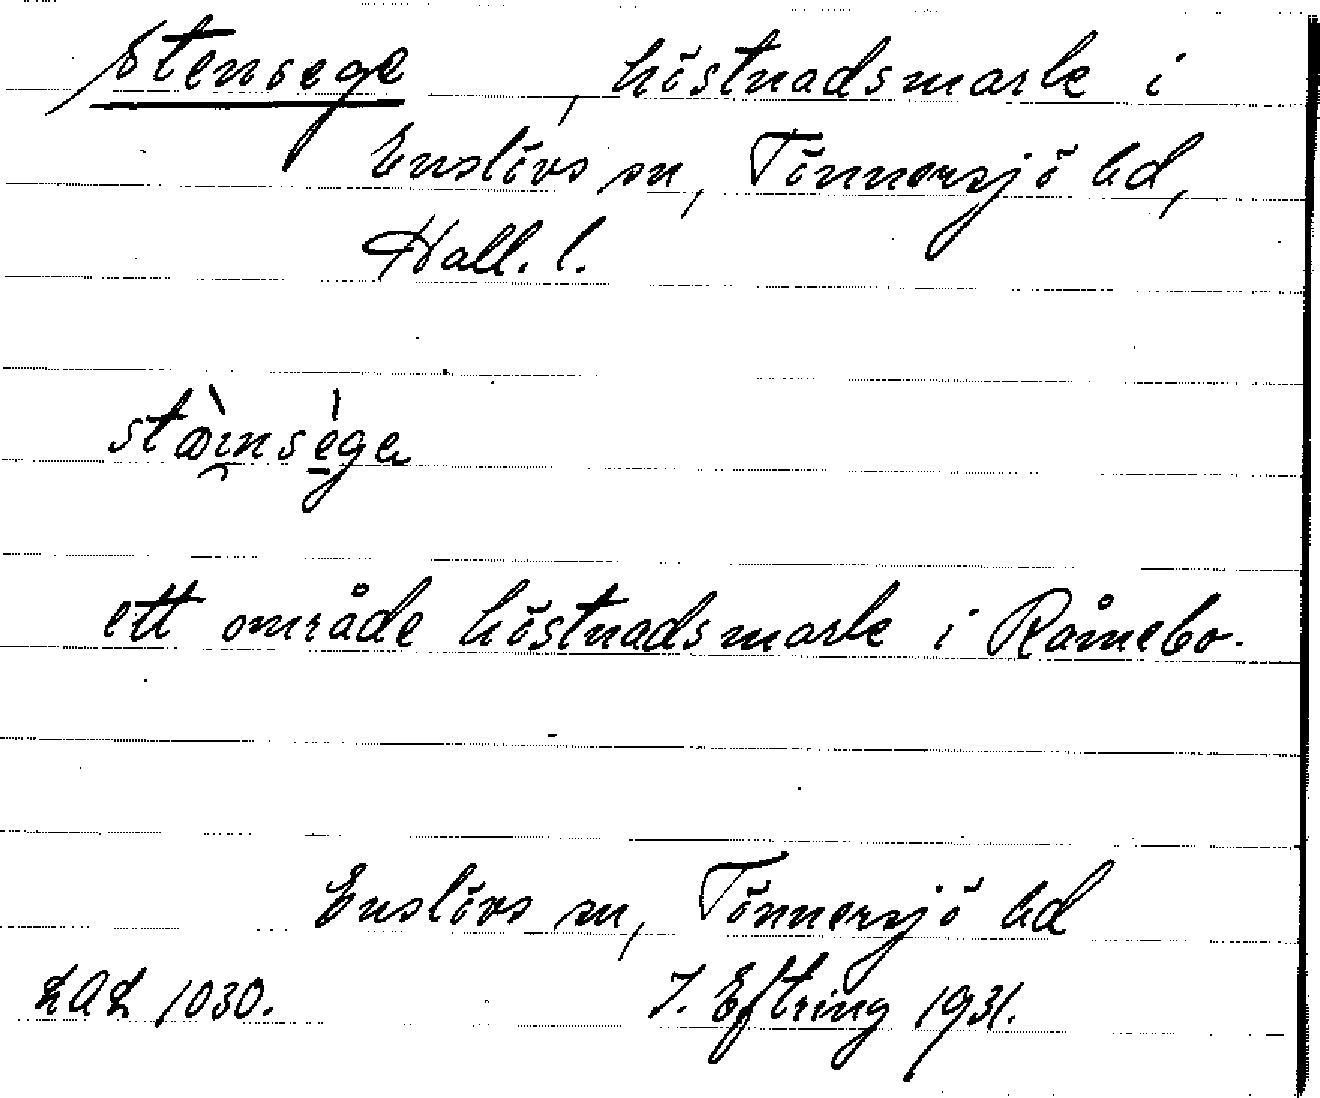 Stensege, höstnadsmark i
Enslövs sn, Tönnersjö hd,
Hall. l.
stæ̀i̯nsè̱ge
ett område höstnadsmark i Råmebo.
Enslövs sn, Tönnersjö hd
LAL 1030. J. Eftring 1931.